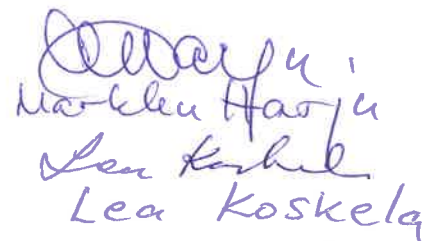 Markku Harju
Lea Koskela
Lea Koskela